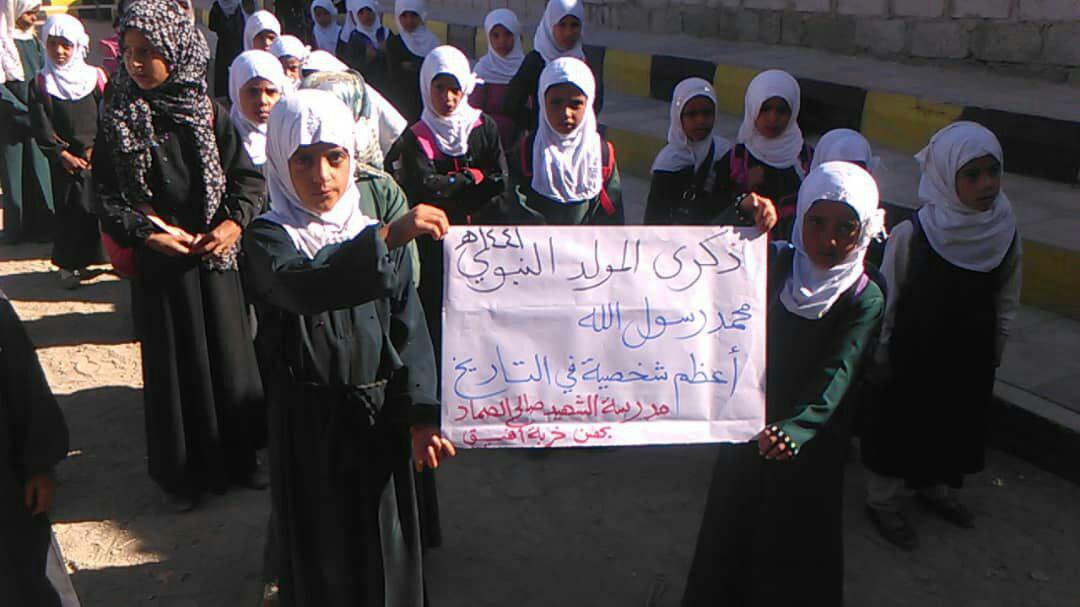 ذكرى المولد النبوي ١٤٤١هـ
محمد رسول الله
أعظم شخصية في التاريخ
مدرسة الشهيد صالح الصماد
خربة أفيق